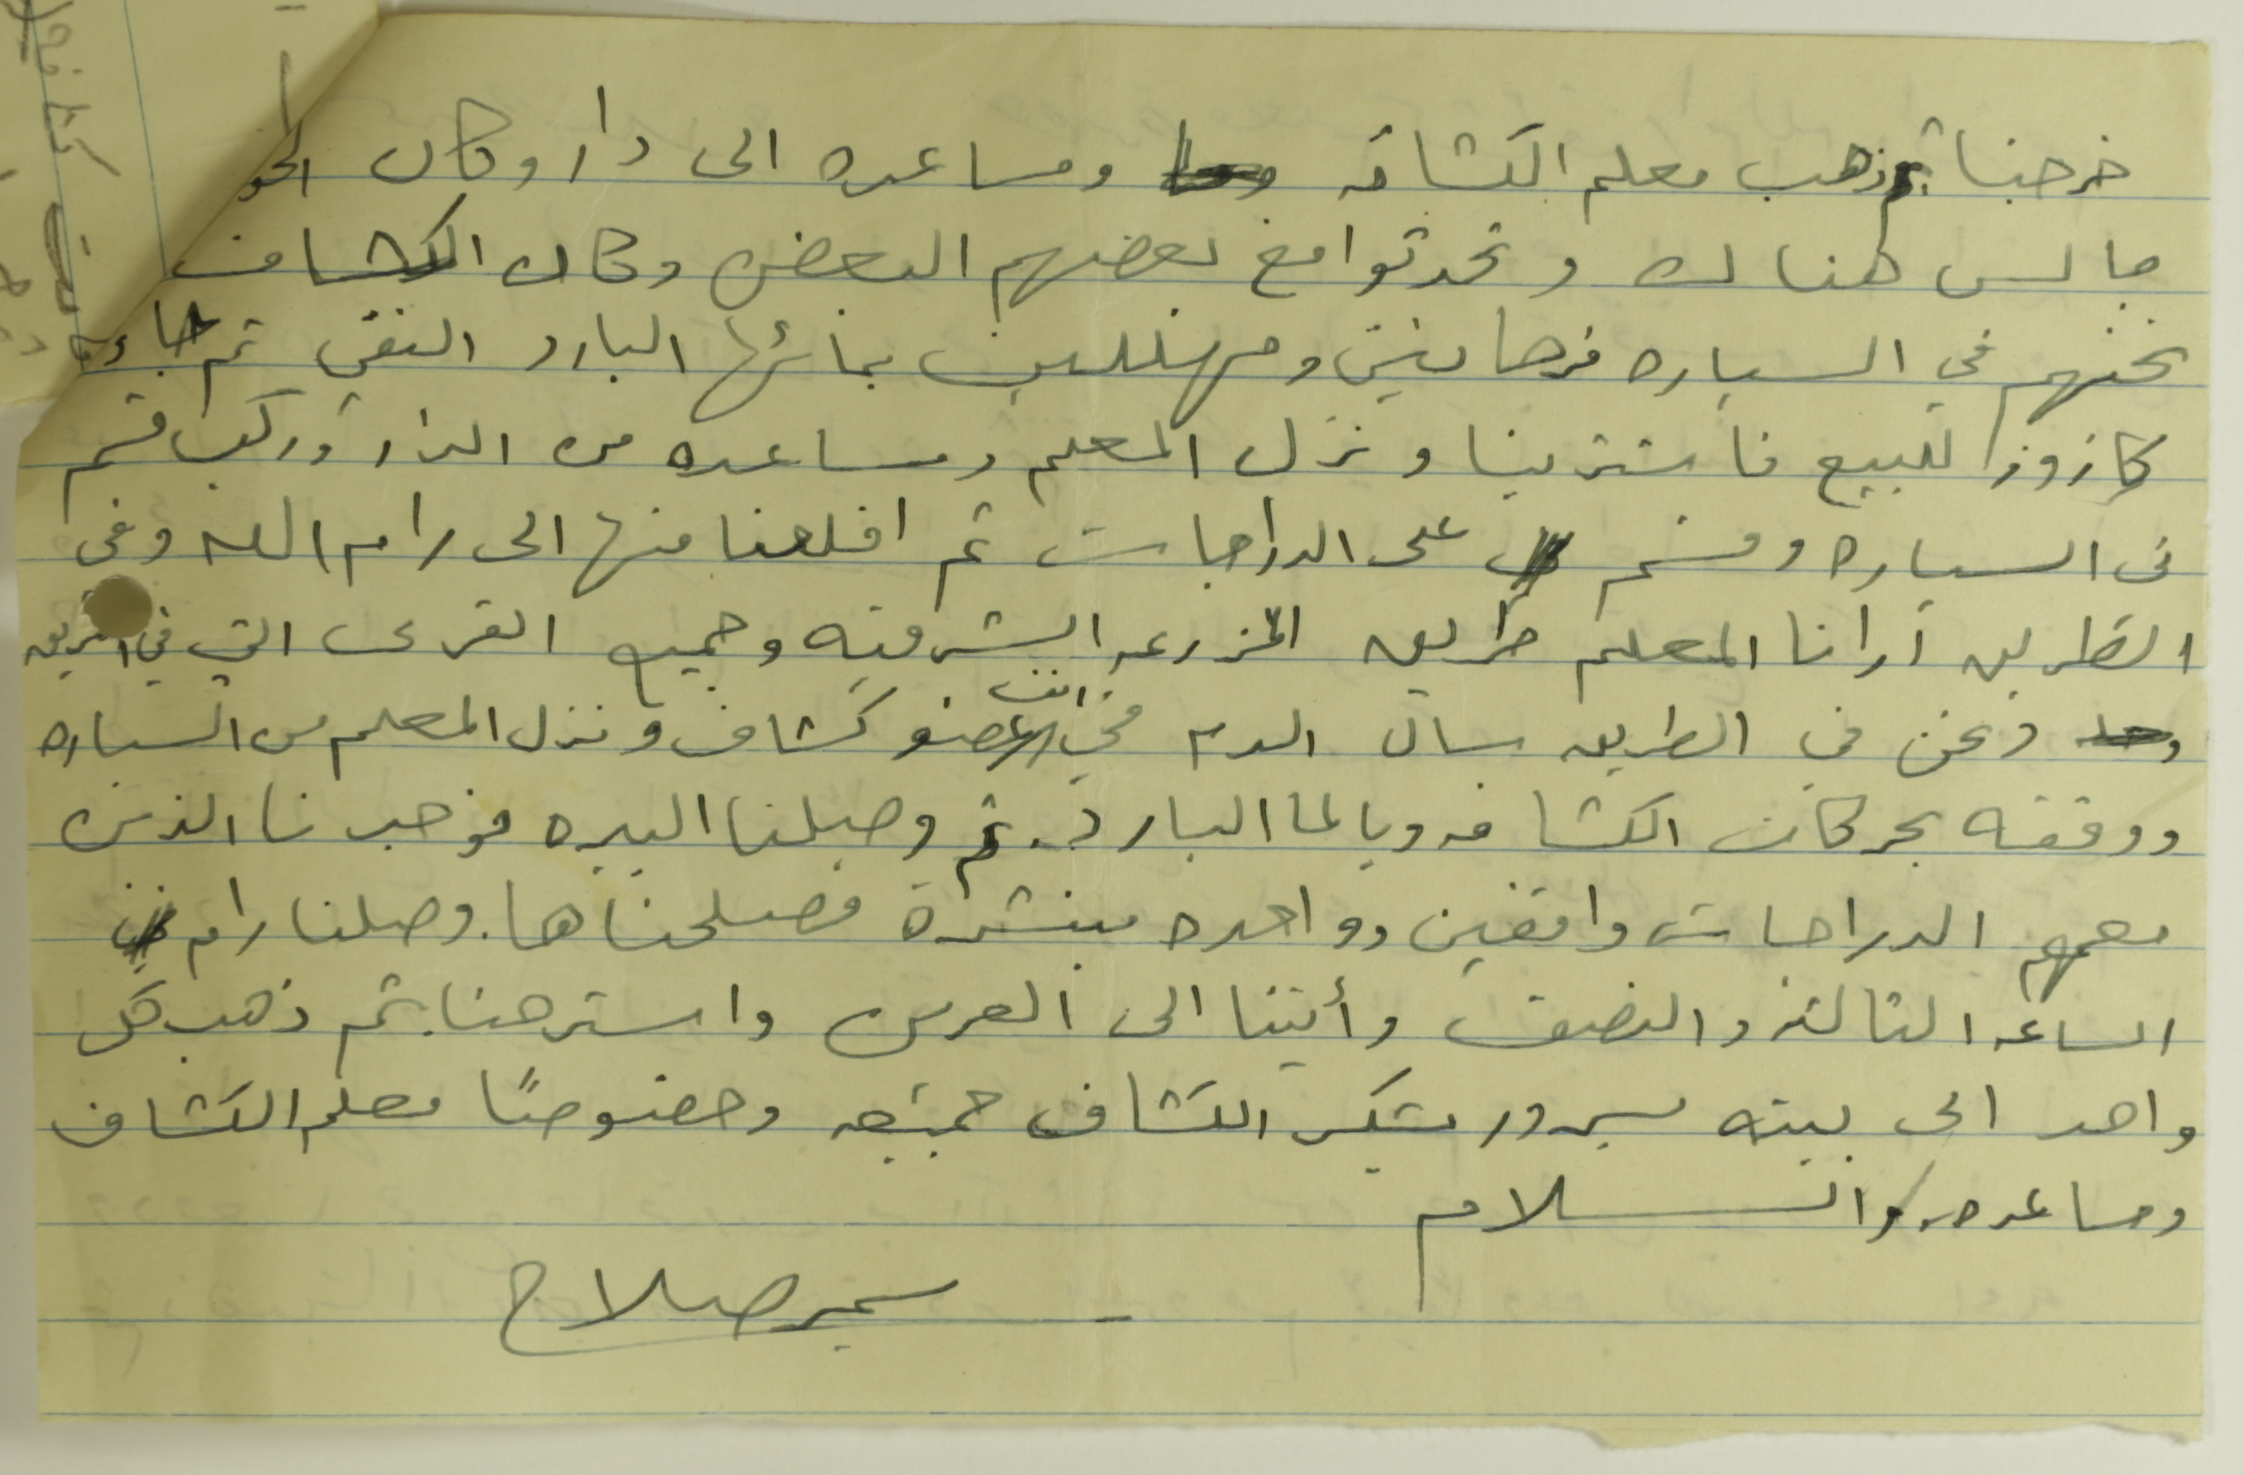 خرجنا ثم ذهب معلم الكشافه ومساعده الى دار وكان الخو
جالس هناك وتحدثوا مع بعضهم البعض وكان الكشاف
تحتهم في السياره فرحانين ومهللين بمائها البارد النقي ثم جاءه
كازوز للبيع فاشترينا ونزل المعلم ومساعده من الدار وركب قسم
في السياره وقسم على الدراجات ثم اقلعنا منها الى رام الله وفي
الطريق أرانا المعلم طريق المزرعه الشرقيه وجميع القرى التي في
ونحن في الطريق سال الدم من انف عضو كشاف ونزل المعلم من السياره
ووقفه بحركات الكشافه وبالما البارد. ثم وصلنا البيره فوجدنا الذين
معهم الدراجات واقفين وواحده مبنشرة فصلحناها. وصلنا رام
الساعه الثالثه والنصف وأتينا الى العرين واسترحنا. ثم ذهب كل
واحد الى بيته بسرور بشكر الكشاف جميعه وخصوصًا معلم الكشاف
ومساعده والسلام
سمير صلاح